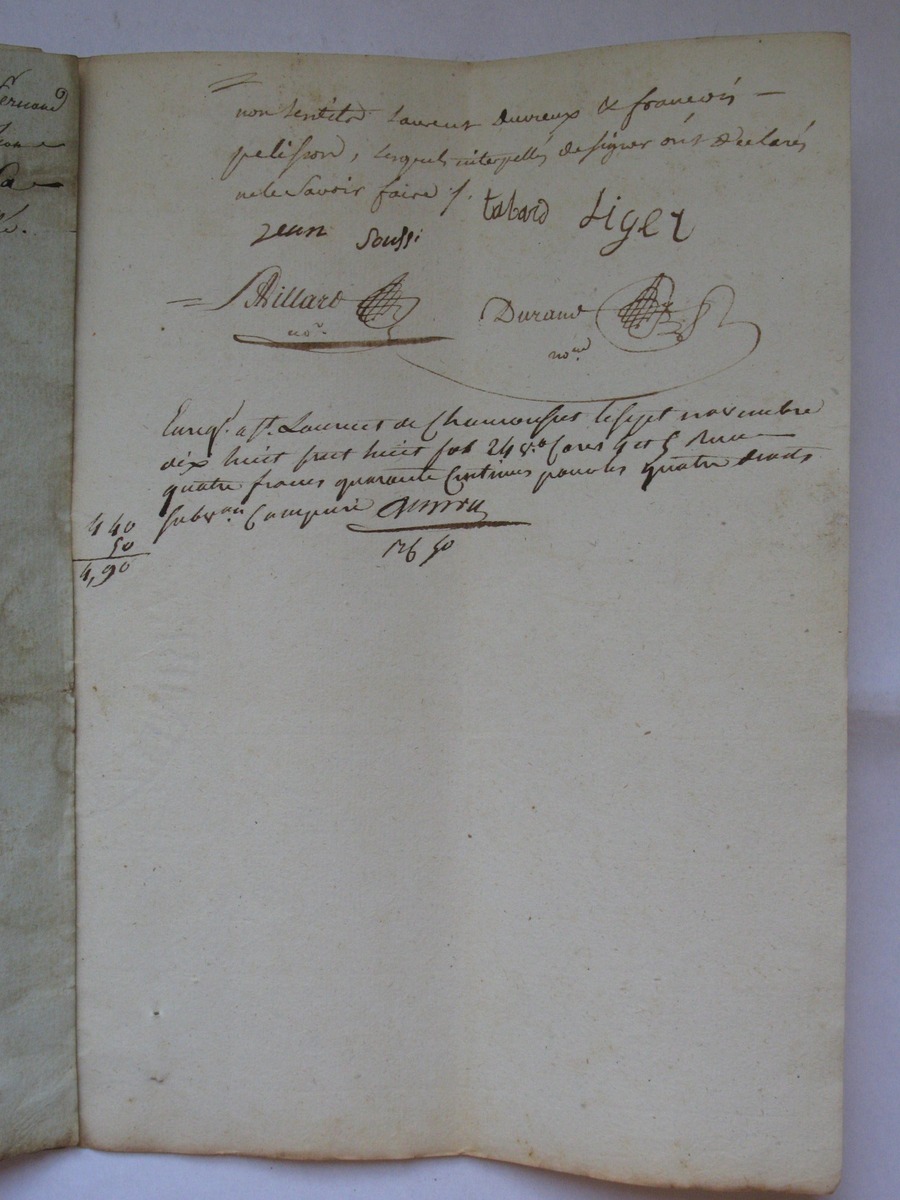 ernand
non lesdits Laurent Duvreux & francois
pelisson, lesquels interpellés de signer ont declarés
ne le savoir faire /.
tabard Liger
Jean Soussi
Billard Durand
no.re no.re
Enreg.t a S.t Laurent de Chamousset le sept novembre
dix huit cent huit fol 24 v.o Cases 4 et 5 Reçu
quatre francs quarante Centimes pour les quatre droits
subv.on Comprise
4 40
50
4,90
176 50